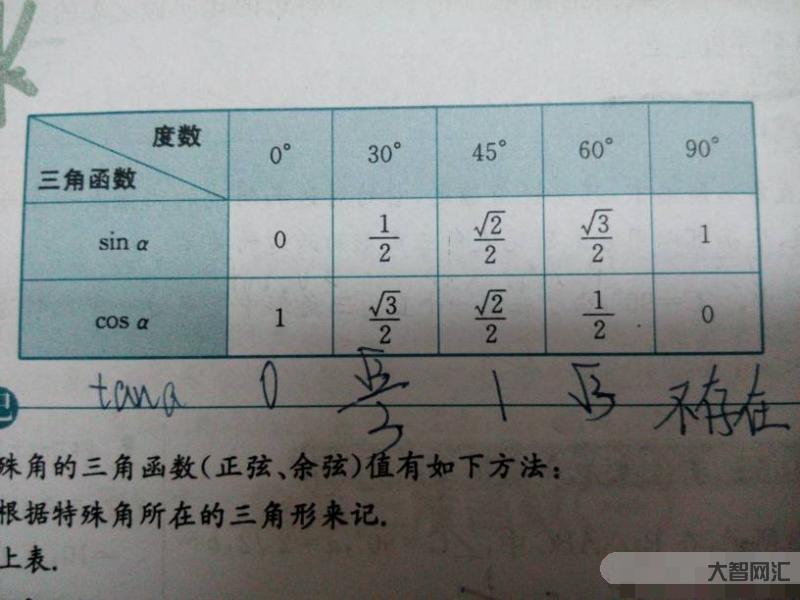 度数
三角函数 0° 30° 45° 60° 90°
sin α 0 1/2 √2/2 √3/2 1
cos α 1 √3/2 √2/2 1/2 0
tanα 0 √3/3 1 √3 不存在
殊角的三角函数(正弦、余弦)值有如下方法:
根据特殊角所在的三角形来记.
上表.
大智网汇